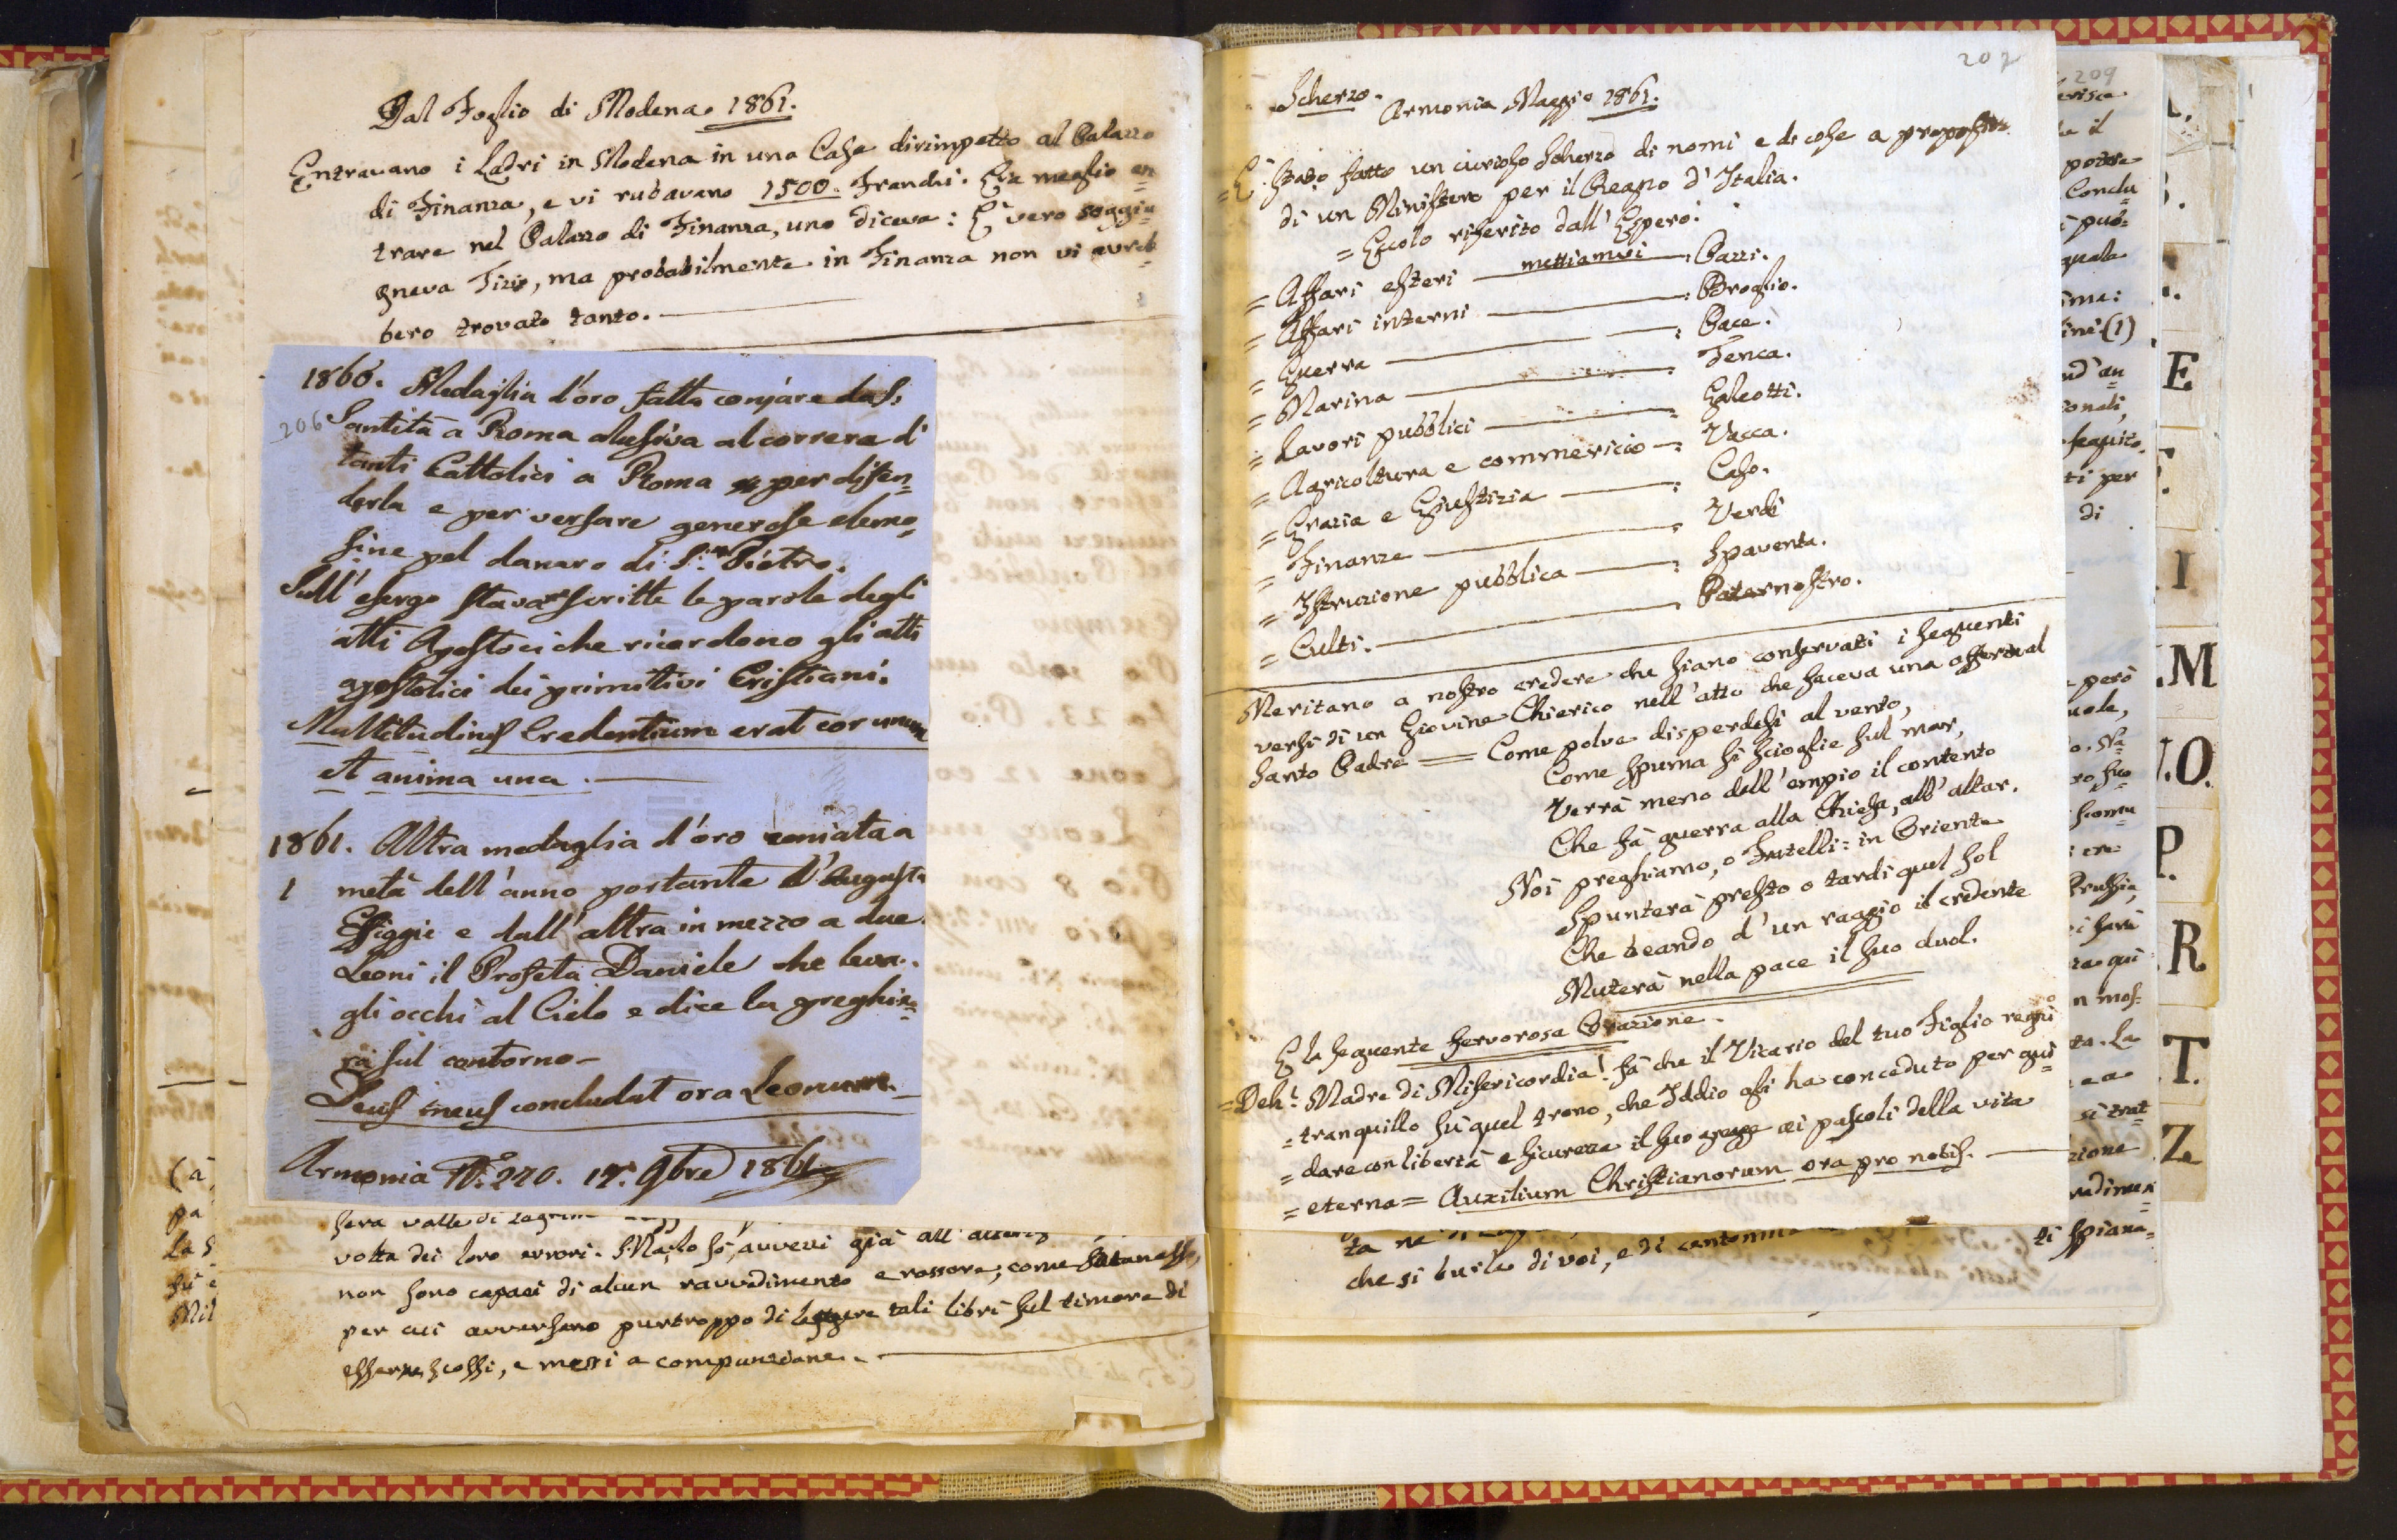 Dal Foglio di Modena. 1861.
Entravano i Ladri in Modena in una Casa dirimpetto al Palazzo
di Finanza, e vi rubavano 1500. Franchi. Era meglio en
trare nel Palazzo di Finanza, uno diceva: È vero soggiu=
gneva Tizio, ma probabilmente in Finanza non vi avreb=
bero trovato tanto.
1860. Medaglia d'oro fatta coniare da S.
206
Santità a Roma alusiva al correre di
tanti Cattolici a Roma per difen=
derla e per versare generose elemo=
sine pel danaro di S. Pietro.
Sull'esergo stavan scritte le parole degli
atti Apostoci che ricordono gli atti
apostolici dei primitivi Cristiani.
Multitudinis Credentium erat cor unum
et anima una.
1861. Altra medaglia d'oro coniata a
metà dell'anno portante l'Augusta
Effiggie e dall'altra in mezzo a due
Leoni il Profeta Daniele che leva
gli occhi al Cielo e dice la preghie=
ra sul contorno -
Deus meus concludat ora Leonum.
Armonia N.° 220. 17. 9bre 1861
sera valle di
volta dei loro errori. Ma, lo so, avvezzi già all'
non sono capaci di alcun ravvedimento e rossore, come Satanasso,
per cui avversano purtroppo di leggere tali libri sul timore di
esserne scossi, e messi a compunzione.
207
Scherzo.
Armonia Maggio 1861.
= È stato fatto un curioso scherzo di nomi e di cose a proposito
di un Ministero per il Regno d'Italia.
= Eccolo riferito dall'Espero:
= Affari esteri — mettiamvi —: Pazzi.
= Affari interni —: Broglio.
= Guerra —: Pace.
= Marina —: Tenca.
= Lavori pubblici —: Galeotti.
= Agricoltura e commericio —: Vacca.
= Grazia e Giustizia —: Caso.
= Finanze —: Verdi
= Istruzione pubblica —: Spaventa.
= Culti. —: Paternostro.
Meritano a nostro credere che siano conservati i seguenti
versi di un Giovine Chierico nell'atto che faceva una offerta al
Santo Padre = Come polve disperdesi al vento,
Come spuma si scioglie sul mar,
Verrà meno dell'empio il contento
Che fà guerra alla Chiesa, all'altar.
Noi preghiamo, o Fratelli: in Oriente
Spunterà presto o tardi quel sol
Che beando d'un raggio il credente
Muterà nella pace il suo duol.
E la seguente fervorosa Orazione.
= Deh! Madre di Misericordia! fà che il Vicario del tuo Figlio regni
= tranquillo sù quel trono, che Iddio gli ha conceduto per gui=
= dare con libertà e sicurezza il suo gregge ai pascoli della vita
= eterna = Auxilium Christianorum ora pro nobis.
che si burla di voi, e di
ti spiana=
209
E
I
M
O.
P.
R.
T.
Z.